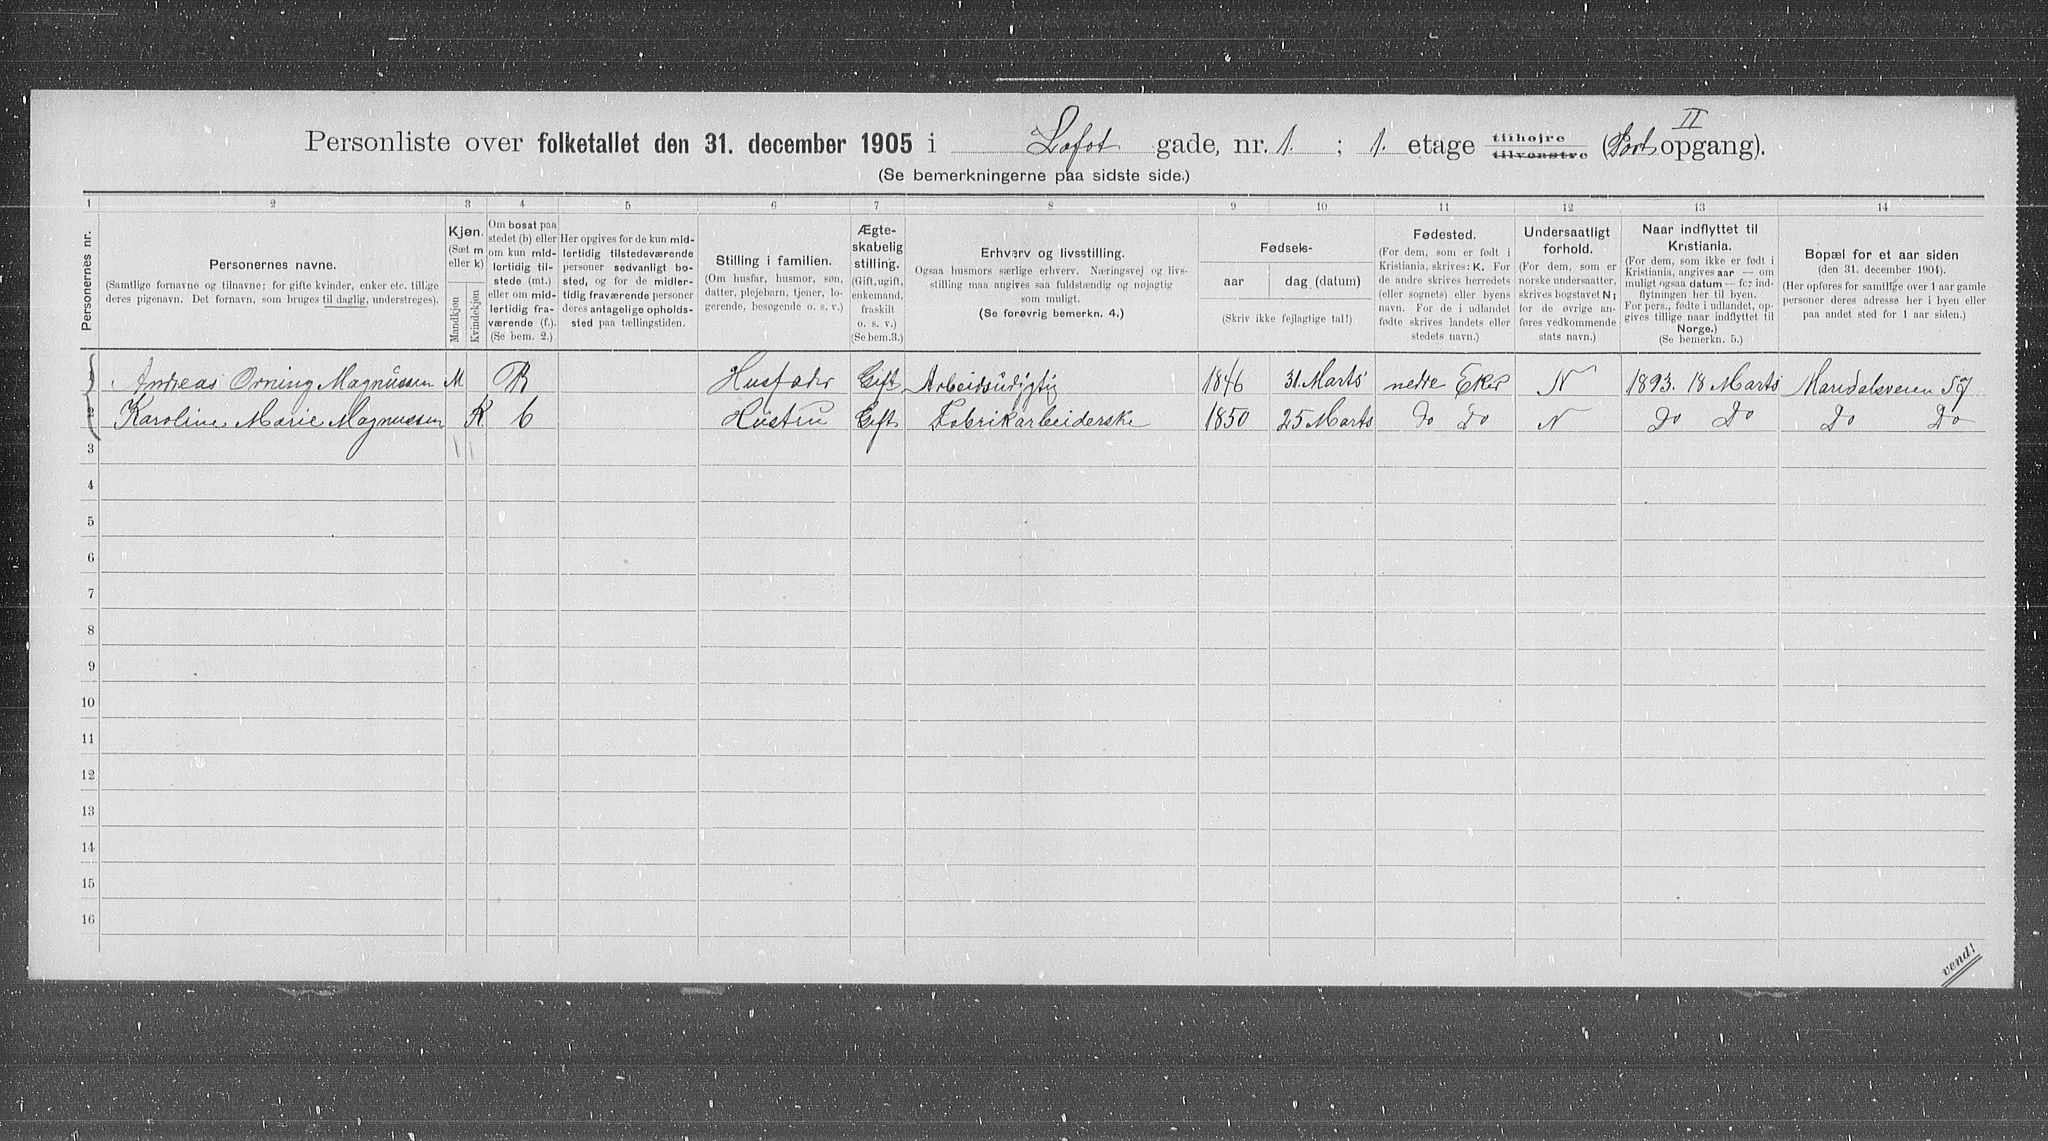 II
Personliste over folketallet den 31. december 1905 i Lofot gade, nr. 1. ; 1. etage tilhøjre tilvenstre (Port opgang).
(Se bemerkningerne paa sidste side.)
1 2 3 4 5 6 7 8 9 10 11 12 13 14
Personernes nr.
Personernes navne.
(Samtlige fornavne og tilnavne; for gifte kvinder, enker etc. tillige
deres pigenavn. Det fornavn, som bruges til daglig, understreges).
Kjøn.
(Sæt m
eller k)
Mandkjøn
Kvindekjøn
Om bosat paa
stedet (b) eller
om kun mid-
lertidig til-
stede (mt.)
eller om mid-
lertidig fra-
værende (f.).
(Se bem. 2.)
Her opgives for de kun mid-
lertidig tilstedeværende
personer sedvanligt bo-
sted, og for de midler-
tidig fraværende personer
deres antagelige opholds-
sted paa tællingstiden.
Stilling i familien.
(Om husfar, husmor, søn,
datter, plejebarn, tjener, lo-
gerende, besøgende o. s. v.)
Ægte-
skabelig
stilling.
(Gift, ugift,
enkemand,
fraskilt
o. s. v.)
(Se bem.3.)
Erhverv og livsstilling.
Ogsaa husmors særlige erhverv. Næringsvej og livs-
stilling maa angives saa fuldstændig og nøjagtig
som muligt.
(Se forøvrig bemerkn. 4.)
Fødsels-
aar
dag (datum)
(Skriv ikke fejlagtige tal!)
Fødested.
(For dem, som er født i
Kristiania, skrives: K. For
de andre skrives herredets
(eller sognets) eller byens
navn. For de i udlandet
fødte skrives landets eller
stedets navn.)
Undersaatligt
forhold.
(For dem, som er
norske undersaatter,
skrives bogstavet N;
for de øvrige an-
føres vedkommende
stats navn.)
Naar indflyttet til
Kristiania.
(For dem, som ikke er født i
Kristiania, angives aar — om
muligt ogsaa datum — for ind-
flytningen her til byen.
For pers., fødte i udlandet, op-
gives tillige naar indflyttet til
Norge.)
(Se bemerkn. 5.)
Bopæl for et aar siden
(den 31. december 1904).
(Her opføres for samtlige over 1 aar gamle
personer deres adresse her i byen eller
paa andet sted for 1 aar siden.)
1 Andreas Orning Magnussen M B Husfader Gift Arbeidsudygtig 1846 31. Marts nedre Eker N 1893. 18 Marts Maridalsveien 59
2 Karoline Marie Magnussen K b Hustru Gift Fabrikarbeiderske 1850 25 Marts Do Do N Do Do Do Do
3
4
5
6
7
8
9
10
11
12
13
14
15
16
vend!